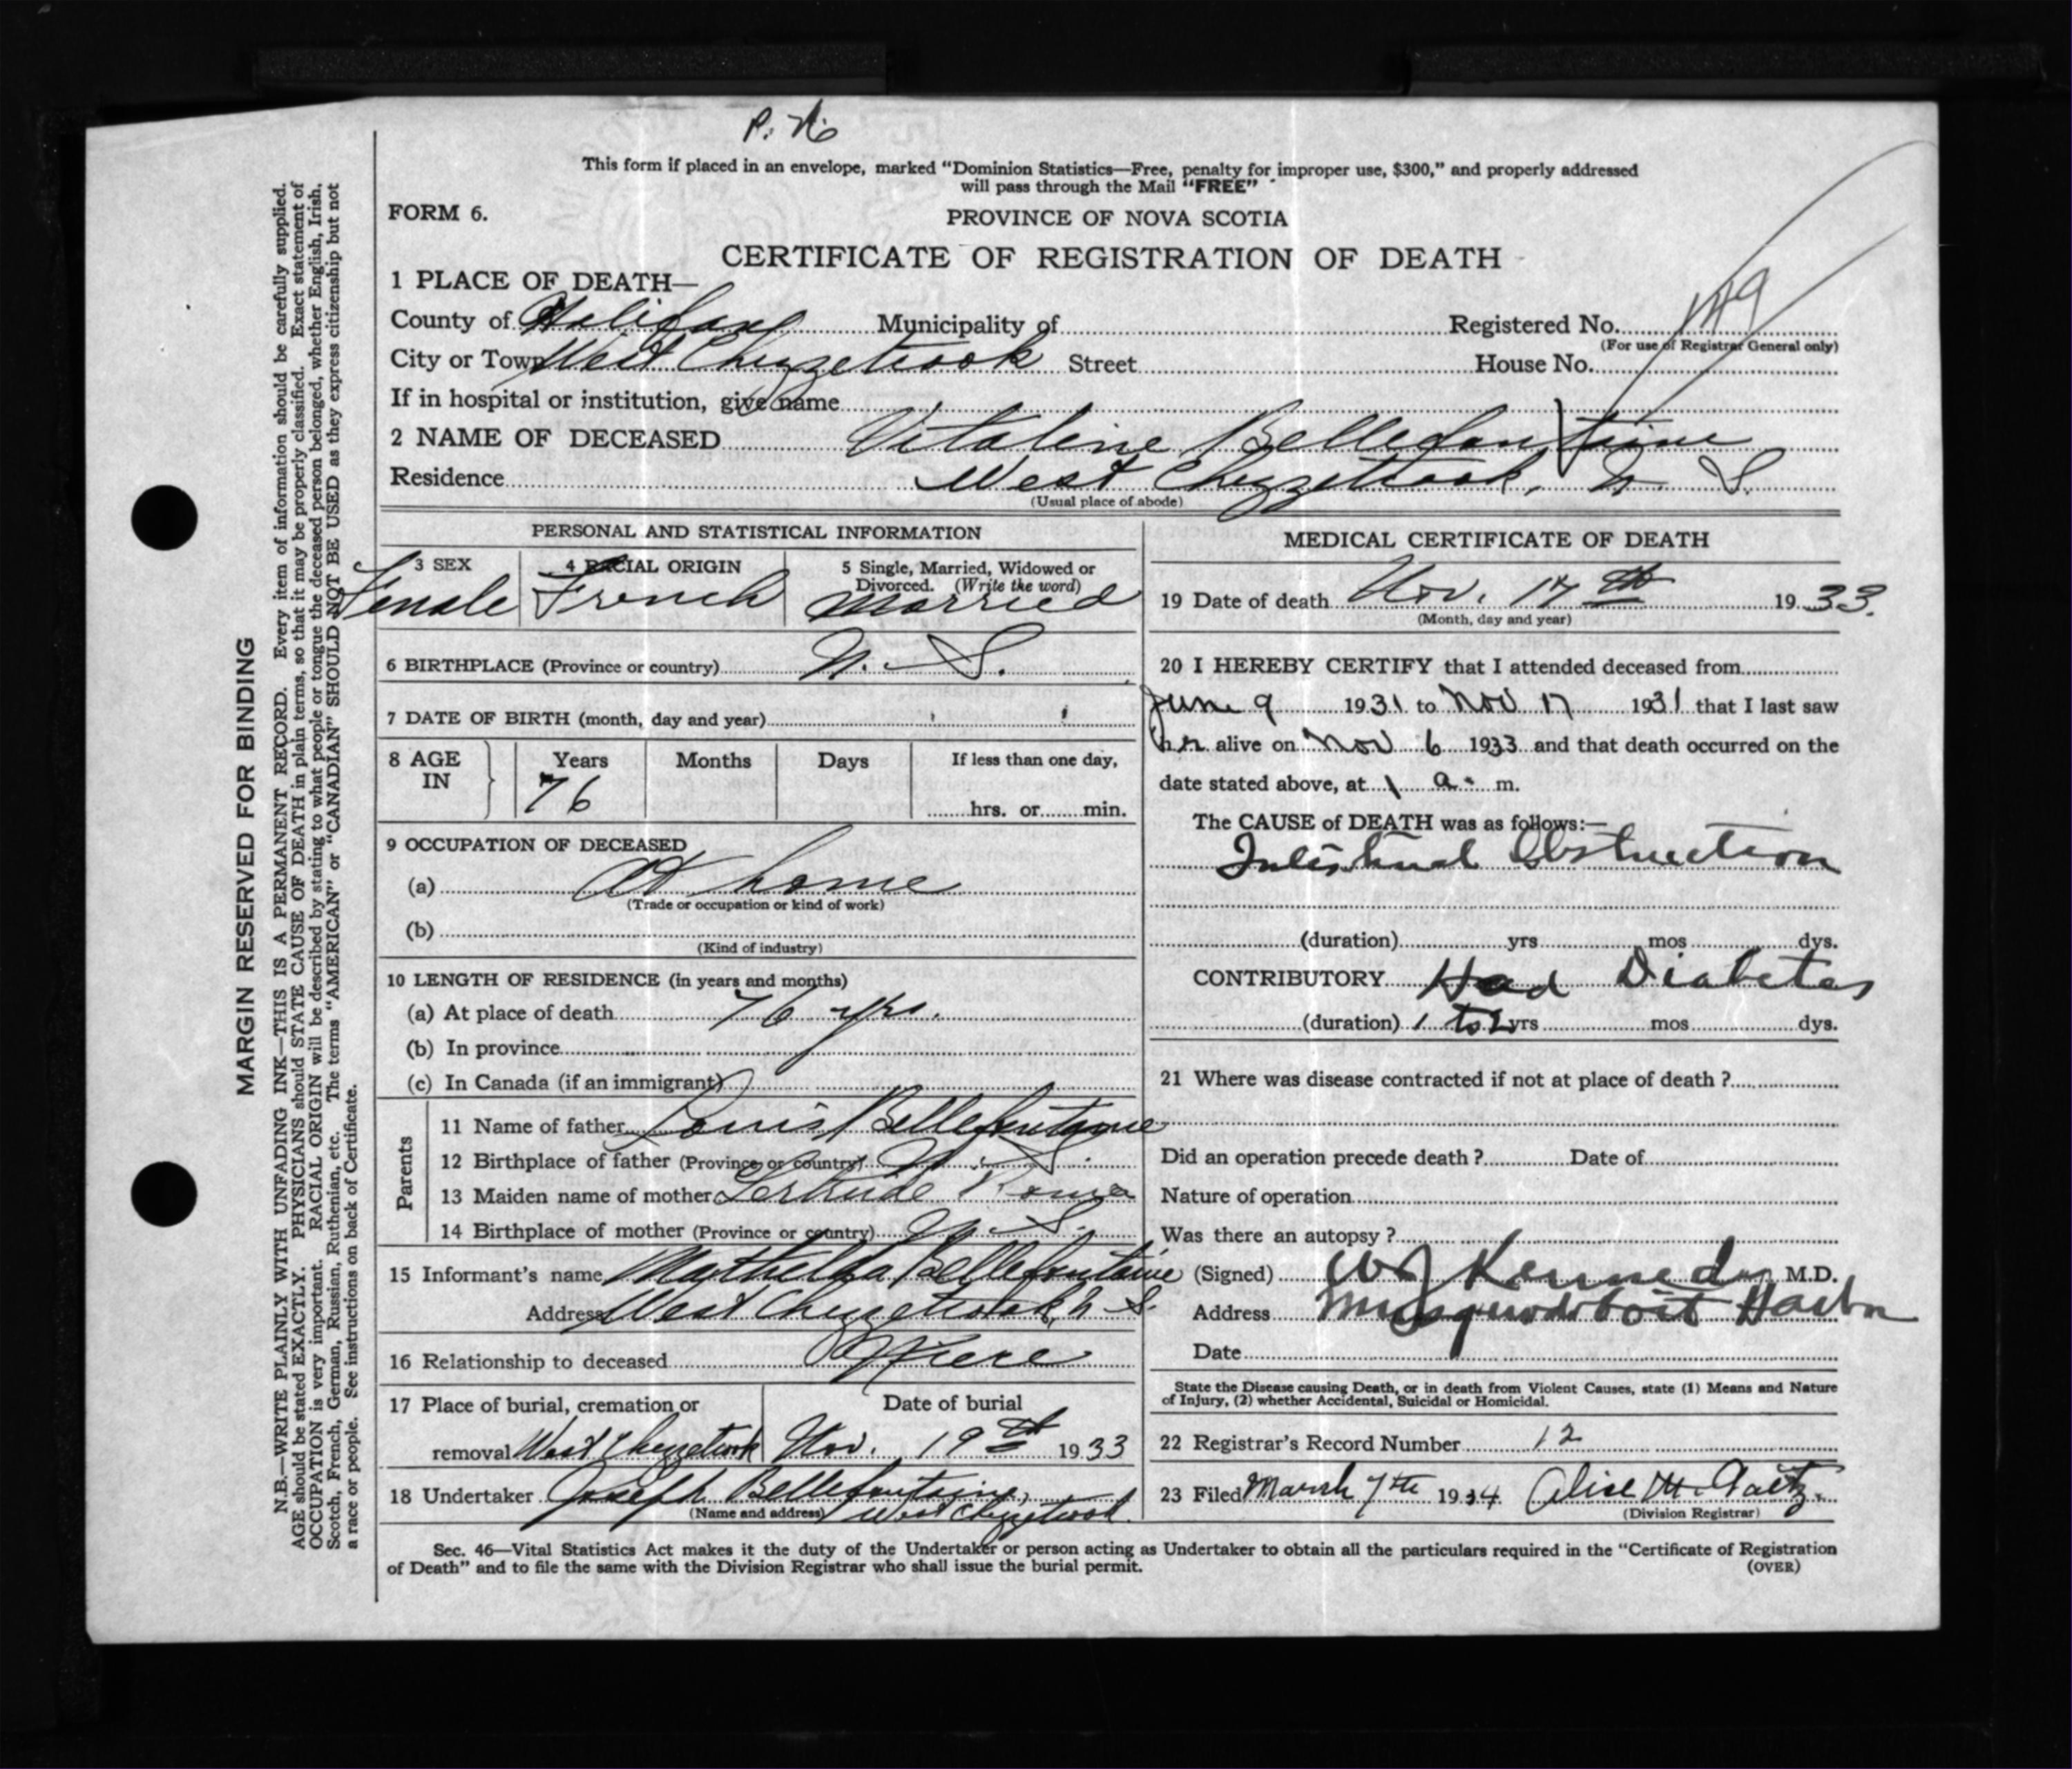 P. N.
This form if placed in an envelope, marked "Dominion Statistics—Free, penalty for improper use, $300," and properly addressed
will pass through the Mail "FREE"
FORM 6.
PROVINCE OF NOVA SCOTIA
CERTIFICATE OF REGISTRATION OF DEATH
1 PLACE OF DEATH—
County of Halifax Municipality of Registered No.
(For use of Registrar General only)
City or Town West Chezzetcook Street House No.
If in hospital or institution, give name
2 NAME OF DECEASED Vitaline Bellefontaine
Residence West Chezzetcook, N. S.
(Usual place of abode)
PERSONAL AND STATISTICAL INFORMATION
3 SEX 4 RACIAL ORIGIN 5 Single, Married, Widowed or
Divorced. (Write the word)
Female French Married
6 BIRTHPLACE (Province or country) N. S.
7 DATE OF BIRTH (month, day and year)
8 AGE IN Years Months Days If less than one day,
76 hrs. or min.
9 OCCUPATION OF DECEASED
(a) At home
(Trade or occupation or kind of work)
(b)
(Kind of industry)
10 LENGTH OF RESIDENCE (in years and months)
(a) At place of death 76 yrs.
(b) In province
(c) In Canada (if an immigrant)
Parents
11 Name of father Louis Bellefontaine
12 Birthplace of father (Province or country) N. S.
13 Maiden name of mother Gertrude
14 Birthplace of mother (Province or country) N. S.
15 Informant's name Bellefontaine
Address West Chezzetcook, N. S.
16 Relationship to deceased Niece
17 Place of burial, cremation or Date of burial
removal West Chezzetcook Nov. 19th 1933
18 Undertaker Joseph Bellefontaine,
(Name and address) West Chezzetcook.
MEDICAL CERTIFICATE OF DEATH
19 Date of death Nov. 17th 1933.
(Month, day and year)
20 I HEREBY CERTIFY that I attended deceased from
June 9 1931 to Nov 17 1931 that I last saw
her alive on Nov 6 1933 and that death occurred on the
date stated above, at 1 a. m.
The CAUSE of DEATH was as follows:—
Intestinal Obstruction
(duration) yrs mos dys.
CONTRIBUTORY Had Diabetes
(duration) 1 to 2 yrs mos dys.
21 Where was disease contracted if not at place of death ?
Did an operation precede death ? Date of
Nature of operation
Was there an autopsy ?
(Signed) W J Kennedy M.D.
Address Musquodoboit Harbor
Date
State the Disease causing Death, or in death from Violent Causes, state (1) Means and Nature
of Injury, (2) whether Accidental, Suicidal or Homicidal.
22 Registrar's Record Number 12
23 Filed March 7th 1934 Alice M. Gaetz.
(Division Registrar)
Sec. 46—Vital Statistics Act makes it the duty of the Undertaker or person acting as Undertaker to obtain all the particulars required in the "Certificate of Registration
of Death" and to file the same with the Division Registrar who shall issue the burial permit. (OVER)
MARGIN RESERVED FOR BINDING
N.B.—WRITE PLAINLY WITH UNFADING INK—THIS IS A PERMANENT RECORD. Every item of information should be carefully supplied.
AGE should be stated EXACTLY. PHYSICIANS should STATE CAUSE OF DEATH in plain terms, so that it may be properly classified. Exact statement of
OCCUPATION is very important. RACIAL ORIGIN will be described by stating to what people or tongue the deceased person belonged, whether English, Irish,
Scotch, French, German, Russian, Ruthenian, etc. The terms "AMERICAN" or "CANADIAN" SHOULD NOT BE USED as they express citizenship but not
a race or people. See instructions on back of Certificate.